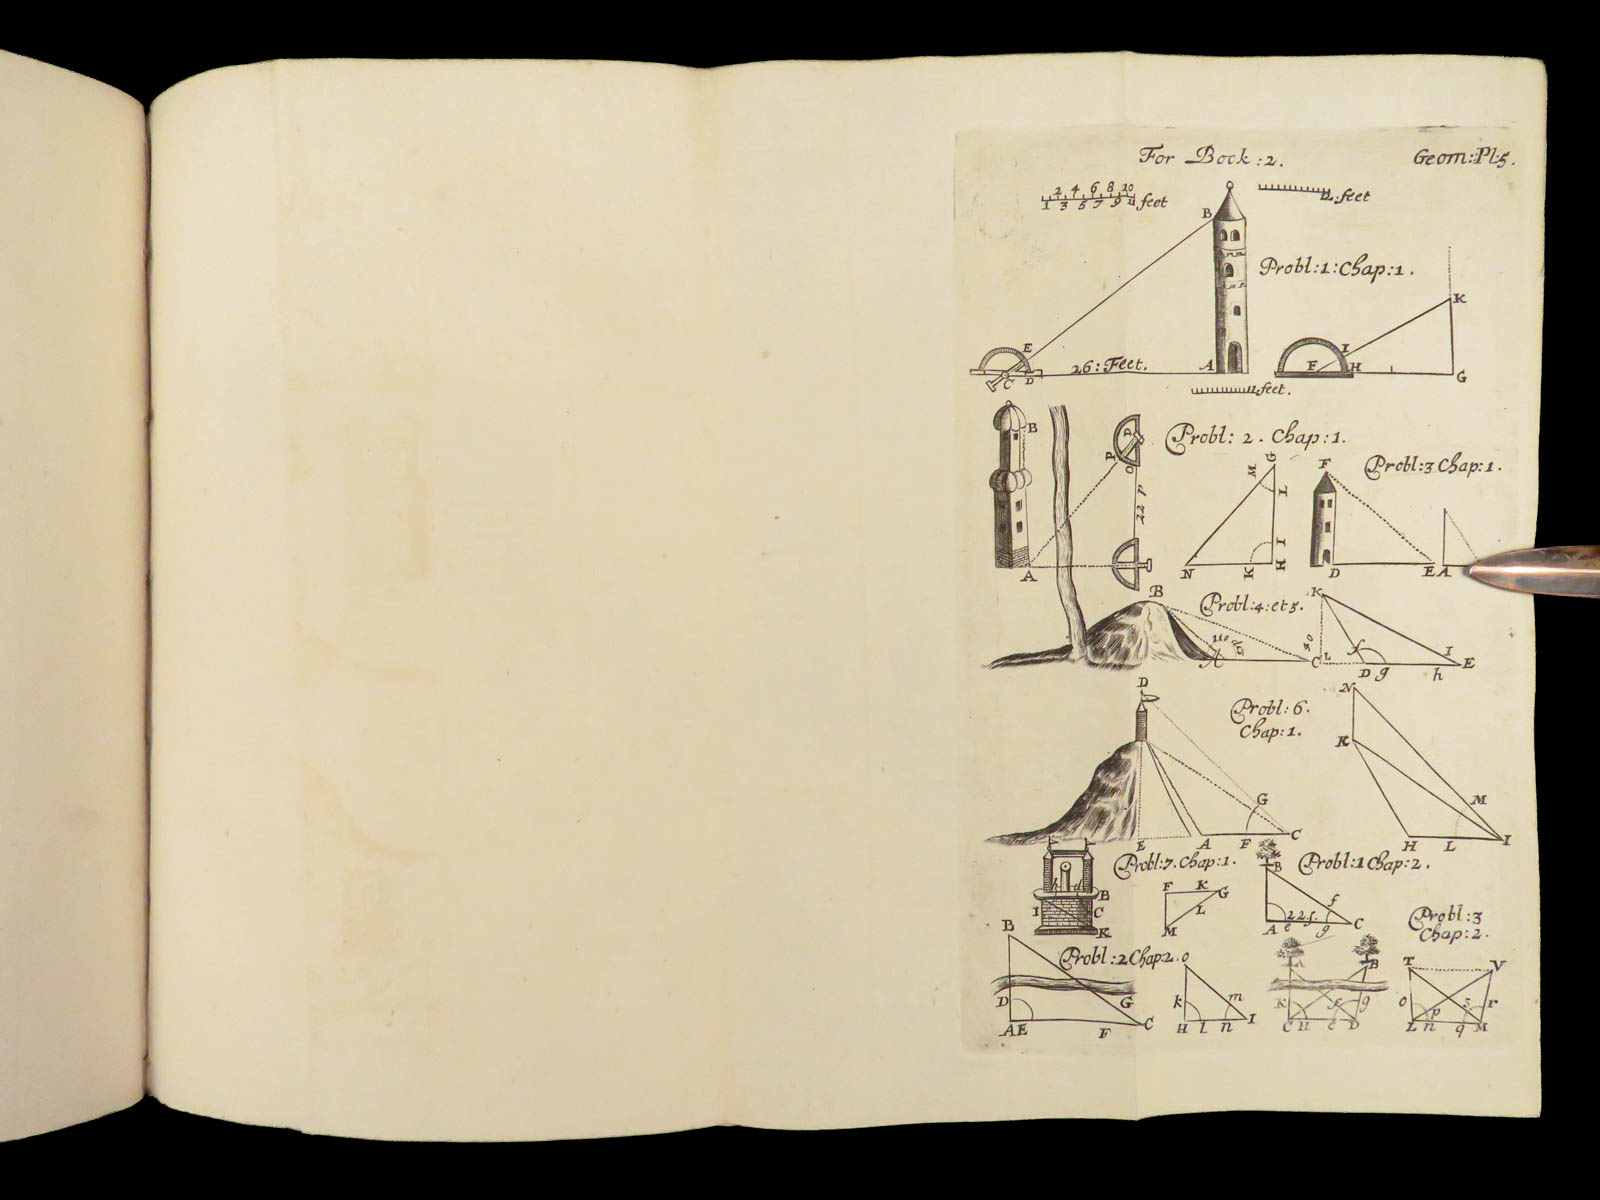 For Book : 2.
Geom: Pl: 5.
2 4 6 8 10
1 3 5 7 9 11 feet
12 feet
B
Probl : 1 : Chap : 1 .
K
E
I
26 : Feet.
A
F H
C D
G
11 feet.
B
P
O
22 P
A
Probl : 2 . Chap : 1.
G
M
L
I
N K H
Probl : 3 Chap : 1 .
F
D E A
B
Probl : 4 : et 5 .
K
110
A C L
I
D g h E
D
Probl : 6 .
Chap : 1 .
N
K
G
M
E A F C
H L I
Probl : 7 . Chap : 1 .
h d
B
I C
K
F K G
L
M
Probl : 1 Chap : 2 .
B
f
A e g C
Probl : 3
Chap : 2 .
B
Probl : 2 Chap : 2 .
D G
A E F C
o
k m
H l n I
A B
K f g
C H e D
T V
o p s r
L n q M